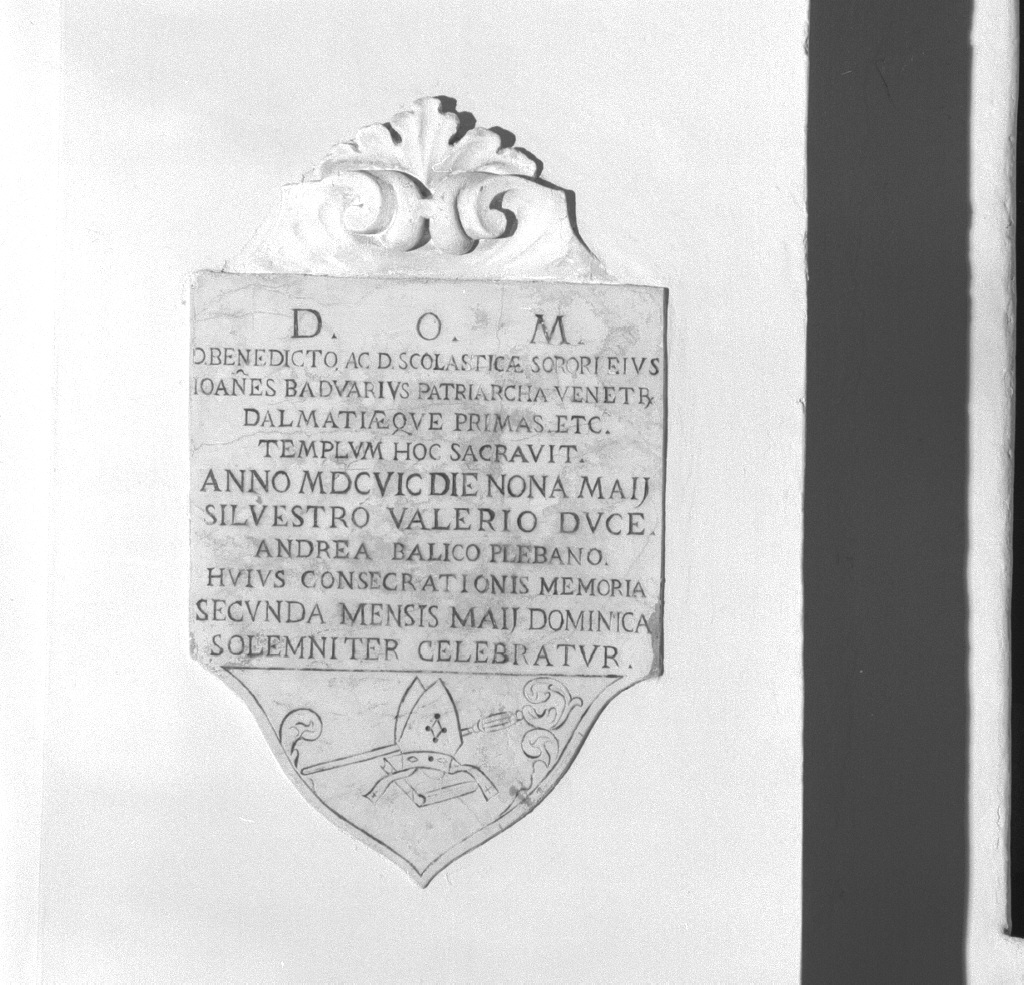 D. O. M.
D. BENEDICTO, AC D. SCOLASTICÆ SORORI EIVS
IOAÑES BADVARIVS PATRIARCHA VENETR̨
DALMATIÆQVE PRIMAS. ETC.
TEMPLVM HOC SACRAVIT.
ANNO MDCVIC DIE NONA MAIJ
SILVESTRO VALERIO DVCE.
ANDREA BALICO PLEBANO.
HVIVS CONSECRATIONIS MEMORIA
SECVNDA MENSIS MAIJ DOMINICA
SOLEMNITER CELEBRATVR.